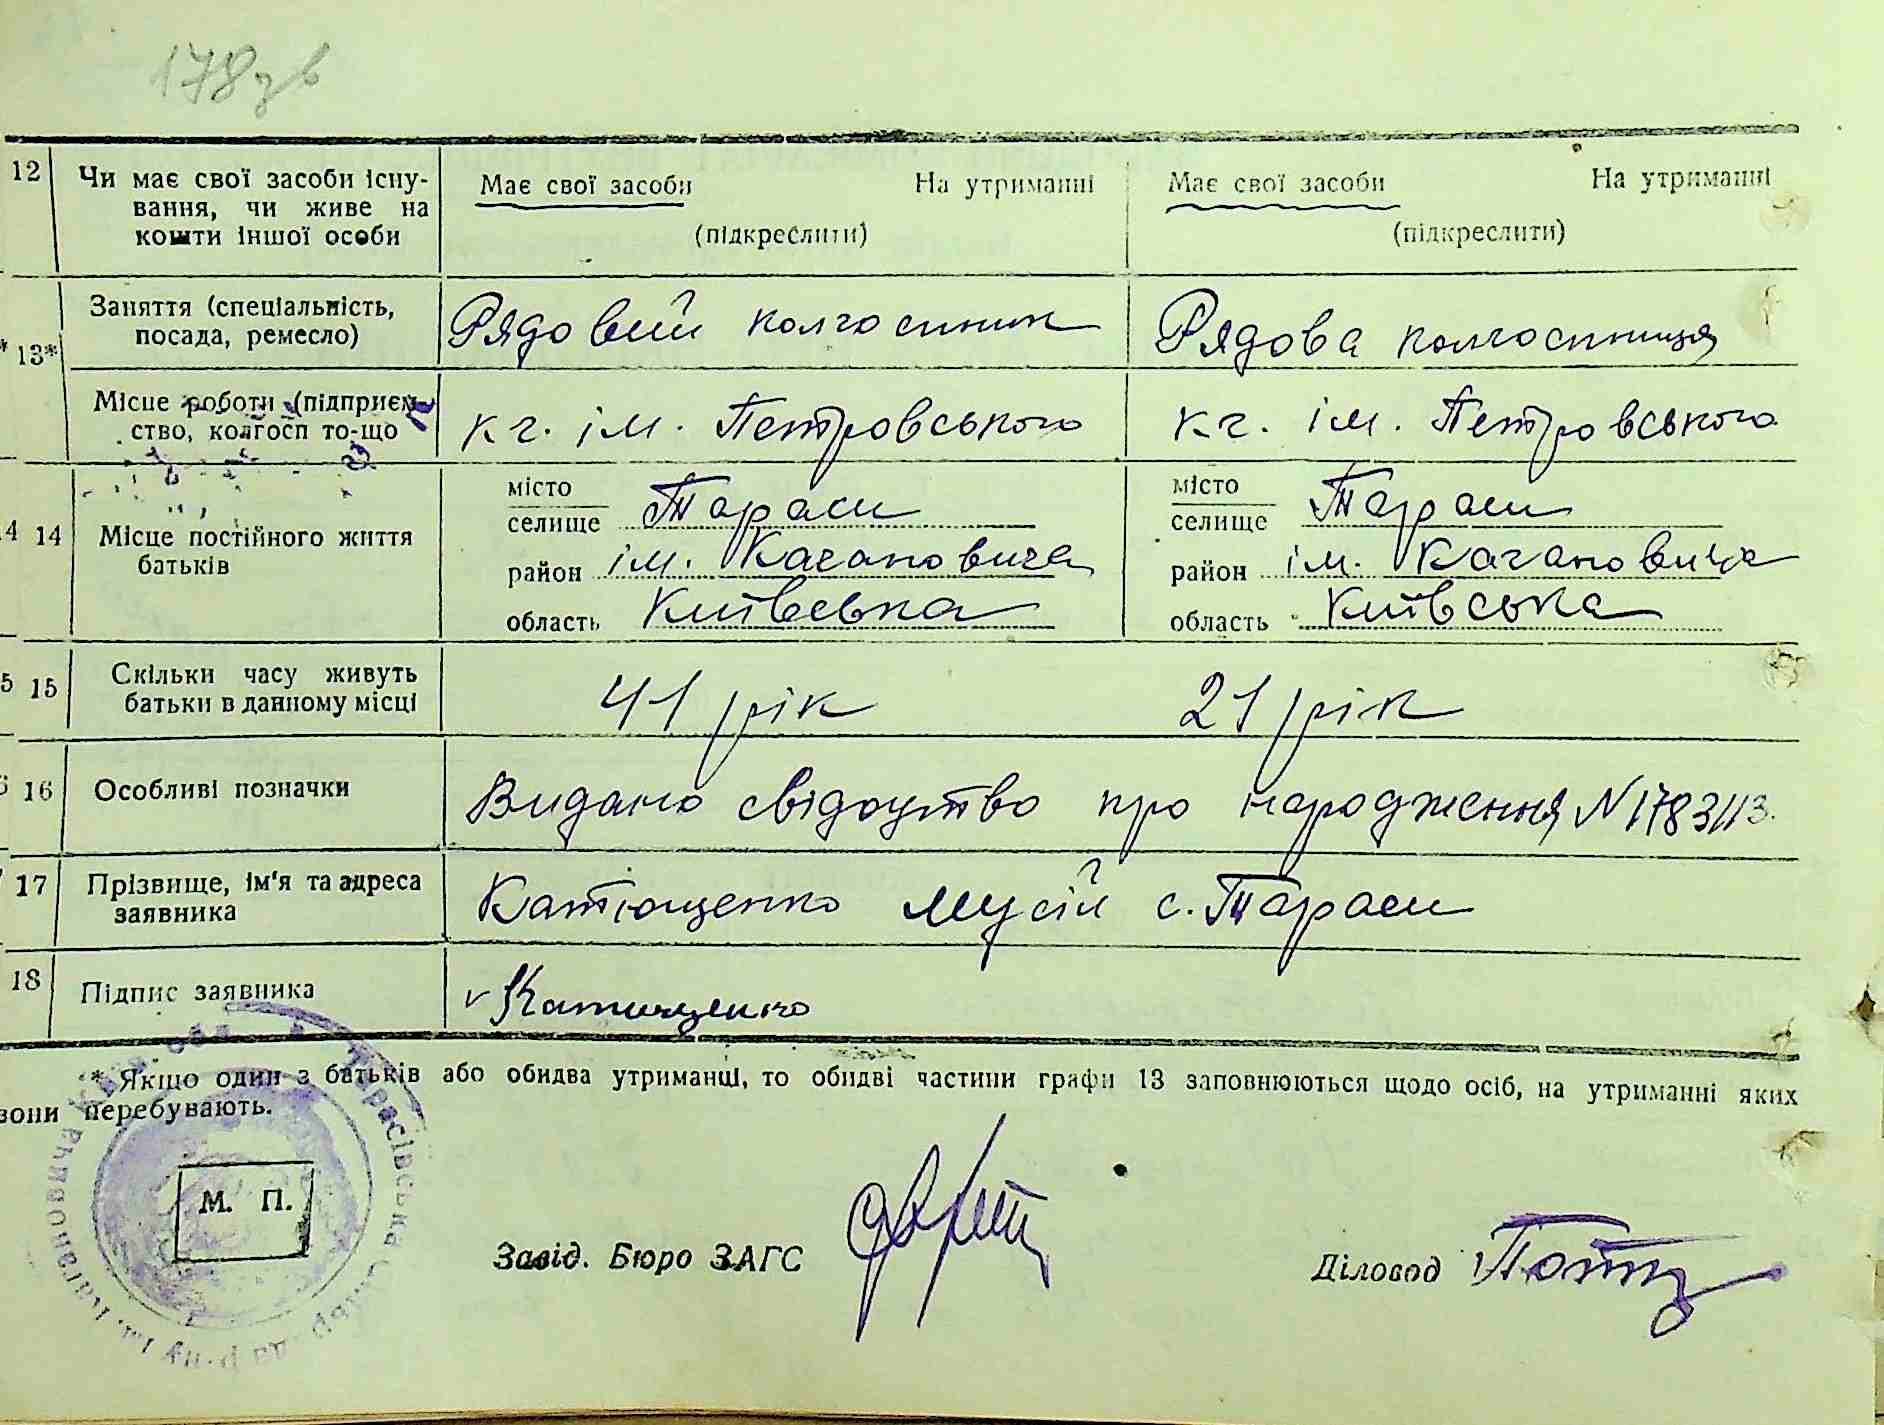 178 зв
12 Чи має свої засоби існу- Має свої засоби На утриманні Має свої засоби На утриманні
вання, чи живе на
кошти іншої особи (підкреслити) (підкреслити)
Заняття (спеціальність, Рядовий колгоспник Рядова колгоспниця
посада, ремесло)
* 13*
Місце роботи (підприєм-
ство, колгосп то-що кг. ім. Петровського кг. ім. Петровського
місто Тараси місто Тараси
селище селище
4 14 Місце постійного життя
батьків район ім. Кагановича район ім. Кагановича
область Київська область Київська
5 15 Скільки часу живуть
батьки в данному місці 41 рік 21 рік
16 Особливі позначки Видано свідоцтво про народження N 178343.
17 Прізвище, ім'я та адреса
заявника Катющенко Мусій с. Тараси
18 Підпис заявника Катющенко
* Якщо один з батьків або обидва утриманці, то обидві частини графи 13 заповнюються щодо осіб, на утриманні яких
вони перебувають.
М. П.
Завід. Бюро ЗАГС
Діловод